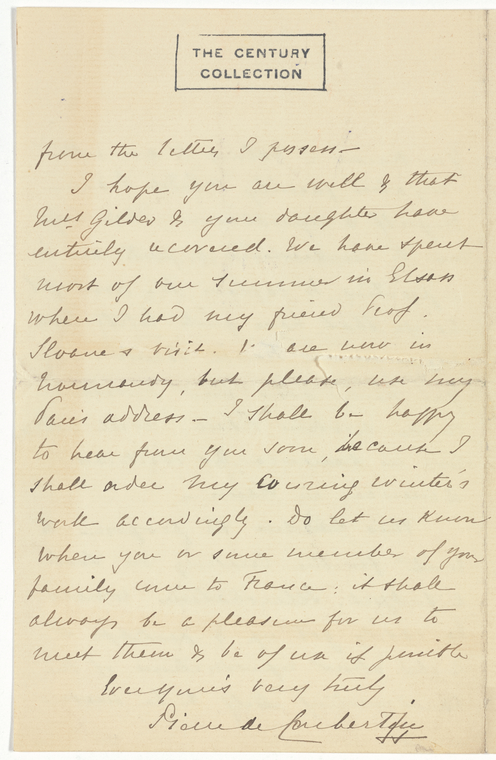 THE CENTURY
COLLECTION
from the letters I possess—
I hope you are well & that
Mrs Gilder & your daughter have
entirely recovered. We have spent
most of our summer in Elsass
where I had my friend Prof.
Sloane's visit. are now in
Normandy, but please, use my
Paris address — I shall be happy
to hear from you soon, because I
shall order my coming winter's
work accordingly. Do let us know
when you or some member of your
family come to France: it shall
always be a pleasure for us to
meet them & be of use if possible
Ever yours very truly
Pierre de Coubertin